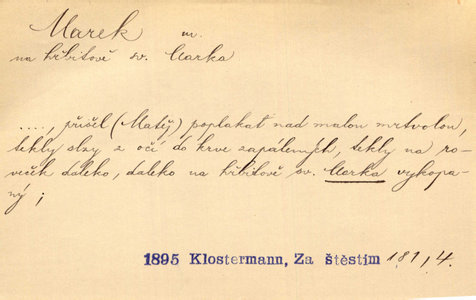 Marek m.
na hřbitově sv. Marka
...., přišel (Matěj) poplakat nad malou mrtvolou,
tekly slzy z očí do krve zapálených, tekly na ro-
veček daleko, daleko na hřbitově sv. Marka vykopa-
ný;
1895 Klostermann, Za štěstím 181,4.